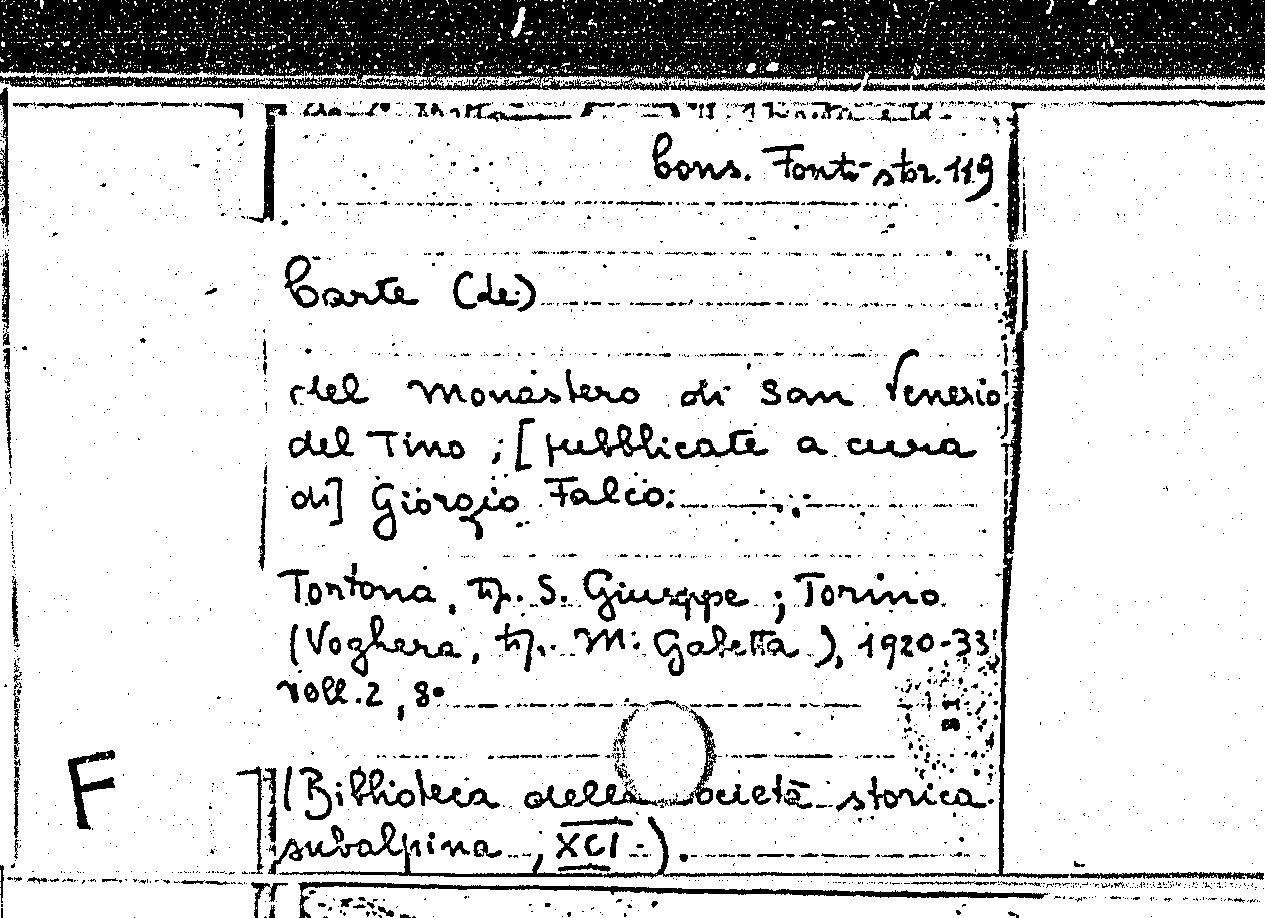 Cons. Fonti str. 119
Carte (de:)
del Monastero di San Venerio
del Tino ; [pubblicate a cura
di] Giorgio Falco:
Tortona, tip. S. Giuseppe ; Torino
(Voghera, tip. M. Gabetta), 1920-33
voll. 2, 8°
(Biblioteca della Società storica
subalpina, XCI.).
F